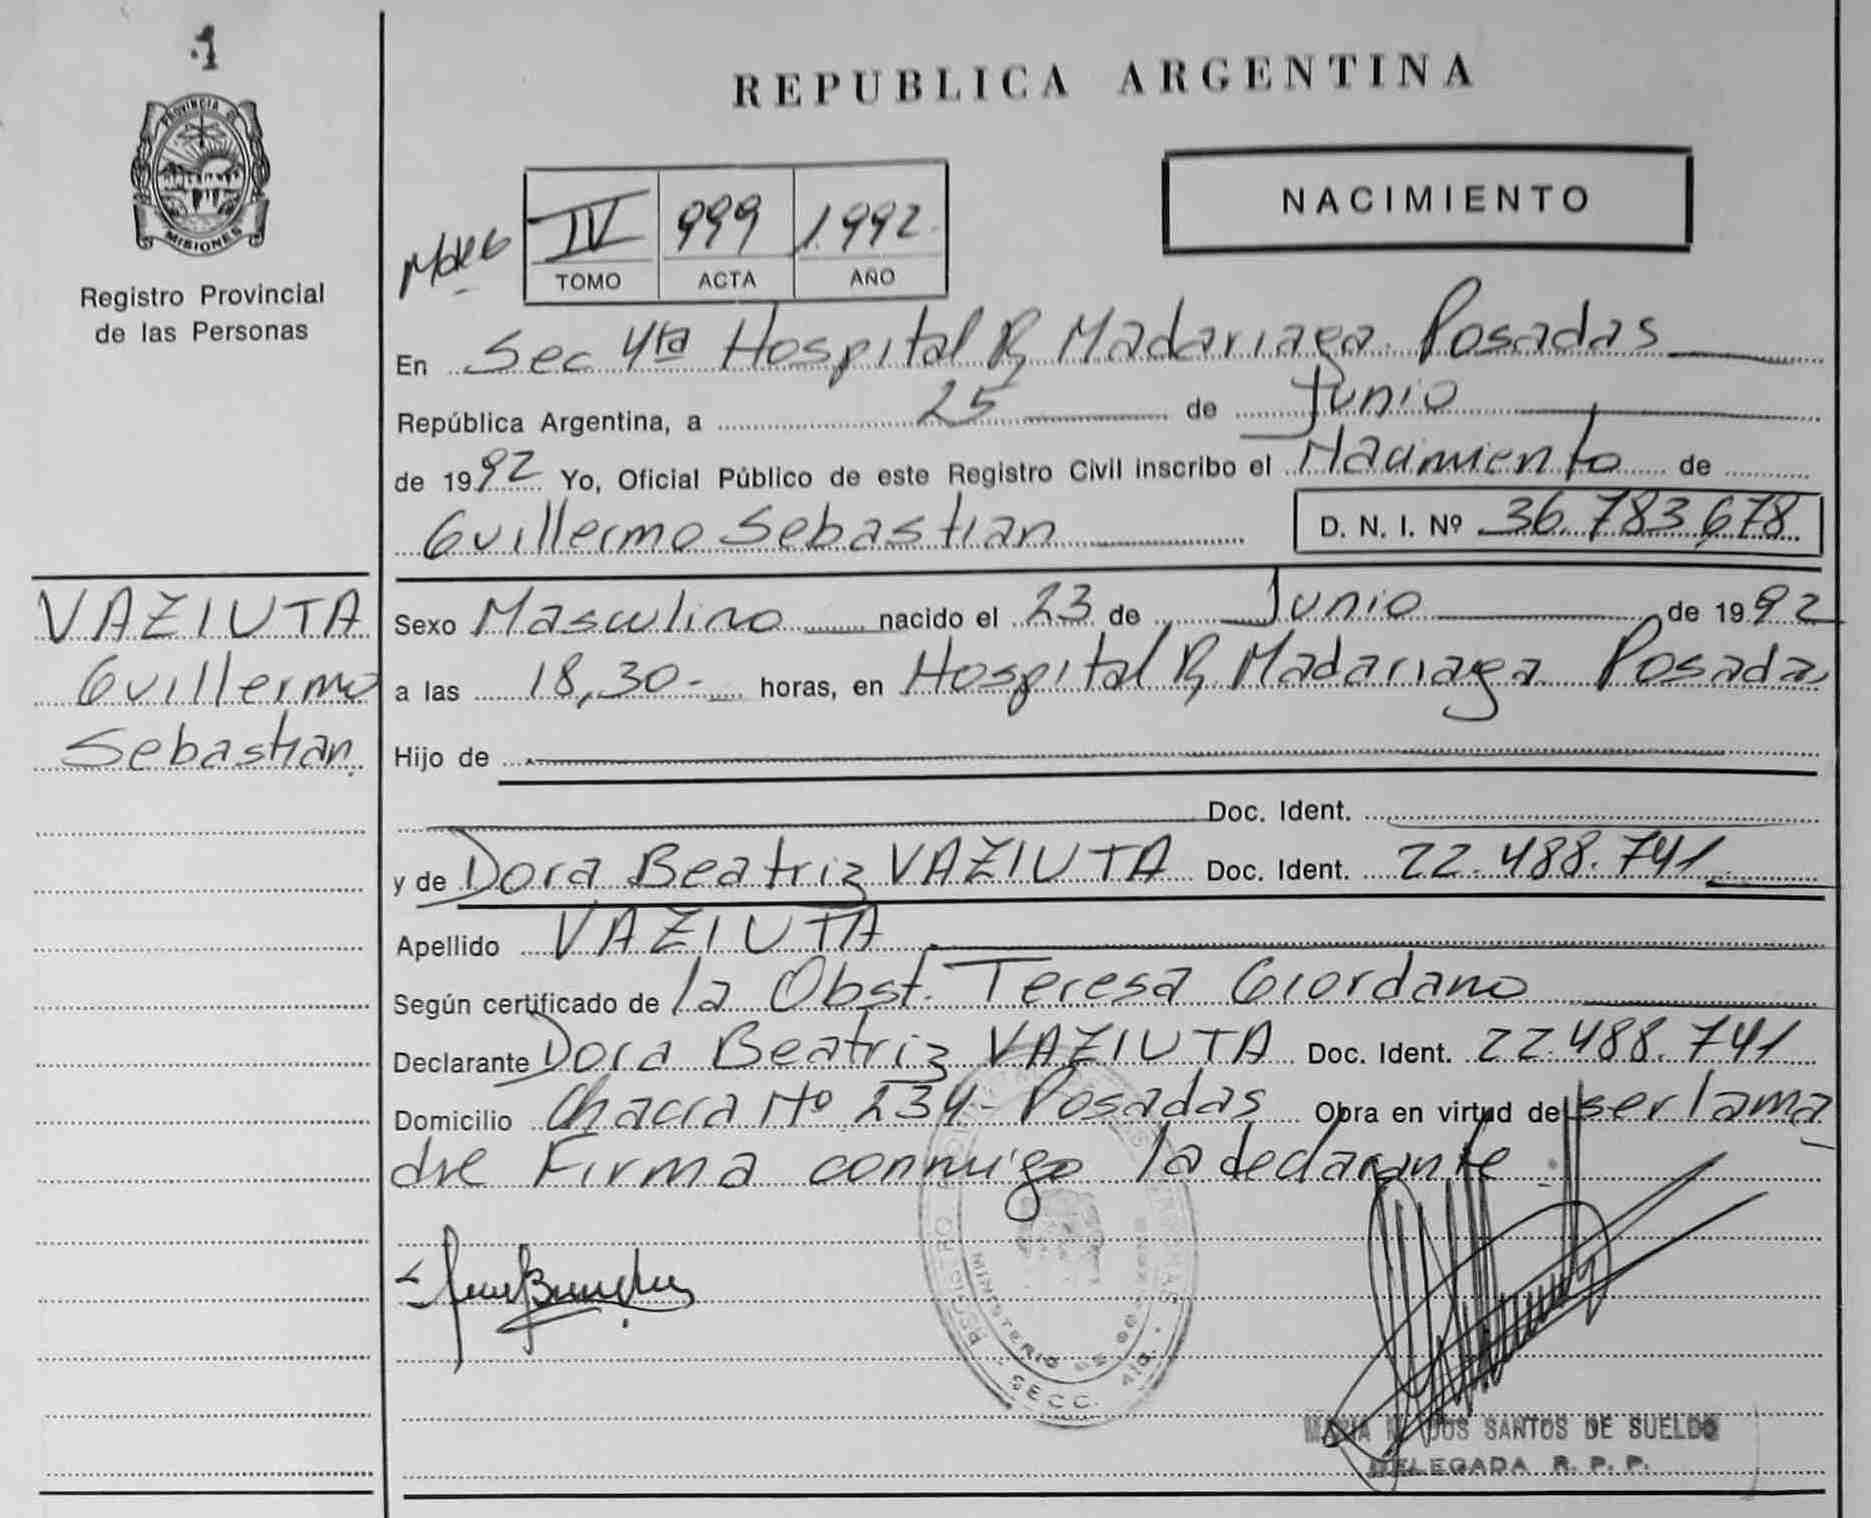 1
PROVINCIA DE
MISIONES
Registro Provincial
de las Personas
REPUBLICA ARGENTINA
NACIMIENTO
IV 999 1992
TOMO ACTA AÑO
En Sec 4ta Hospital R, Madariaga. Posadas
República Argentina, a 25 de Junio
de 1992 Yo, Oficial Público de este Registro Civil inscribo el Nacimiento de
Guillermo Sebastian D. N. I. Nº 36.783.678
VAZIUTA
Guillermo
Sebastian
Sexo Masculino nacido el 23 de Junio de 1992
a las 18,30- horas, en Hospital R, Madariaga Posadas
Hijo de
Doc. Ident.
y de Dora Beatriz VAZIUTA Doc. Ident. 22.488.741
Apellido VAZIUTA
Según certificado de la Obst. Teresa Giordano
Declarante Dora Beatriz VAZIUTA Doc. Ident. 22.488.741
Domicilio Chacra Nº 234- Posadas Obra en virtud de ser la ma
dre Firma conmigo la declarante
MINISTERIO DE
SECC. 4ta.
MARIA DOS SANTOS DE SUELDO
DELEGADA R. P. P.